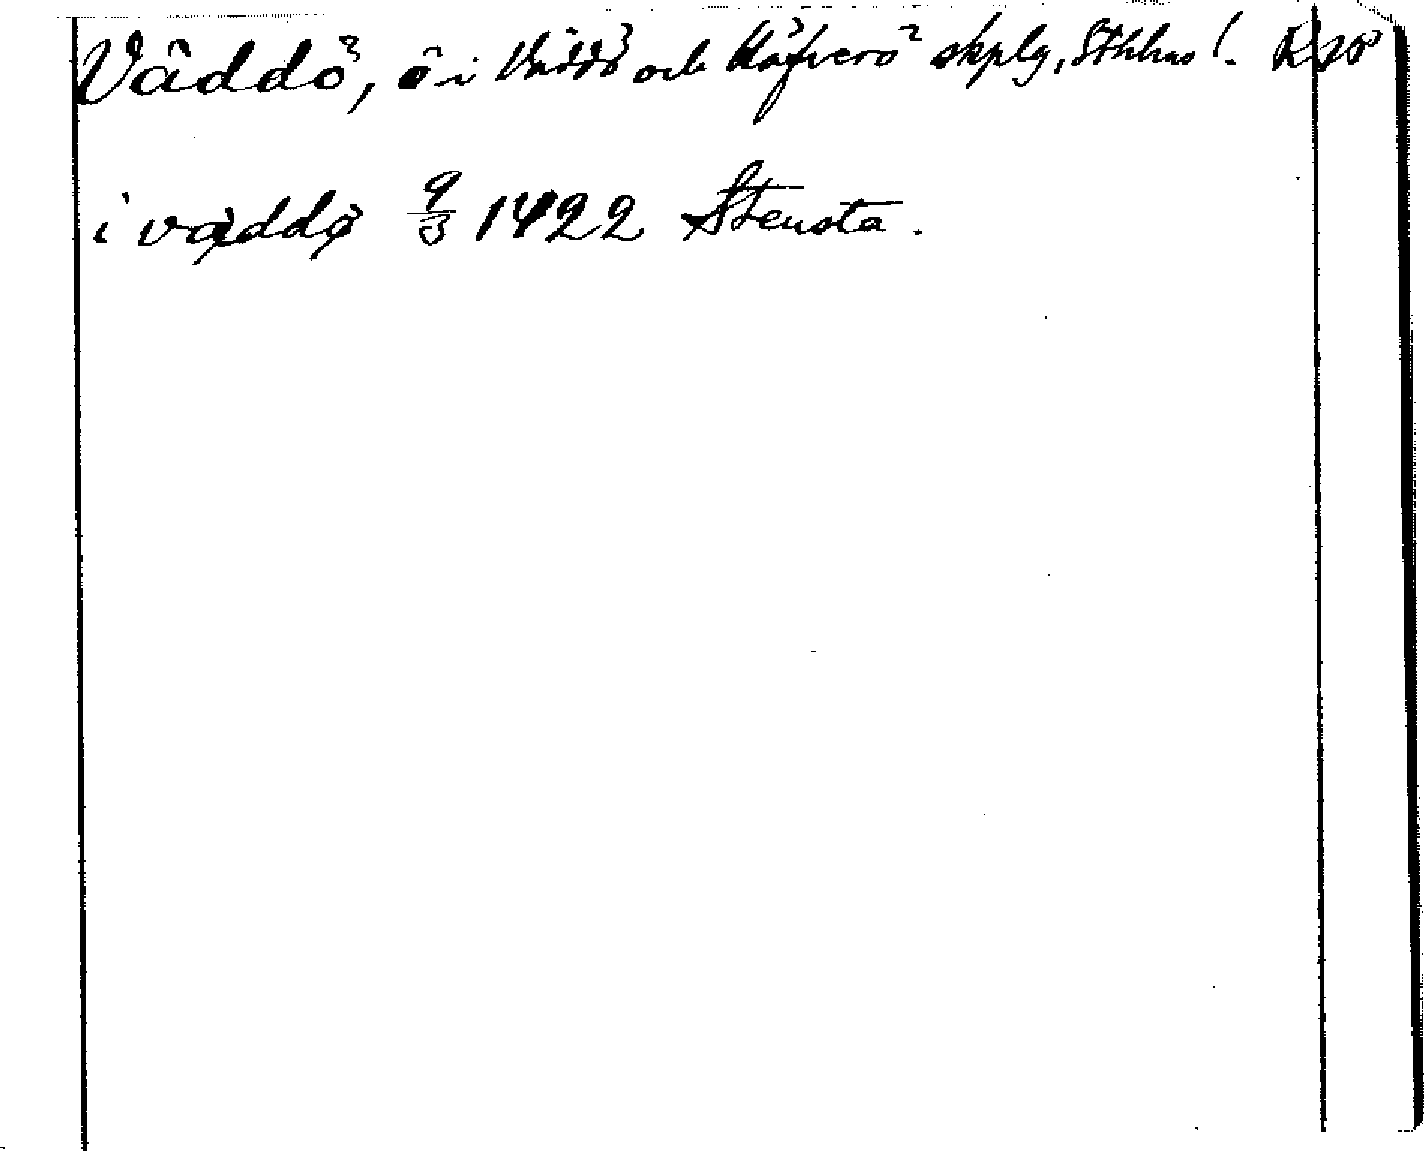 Väddö, ö i Väddö och Häfverö skplg, Sthlms l. Rap
i väddø 9/3 1422 Stensta.